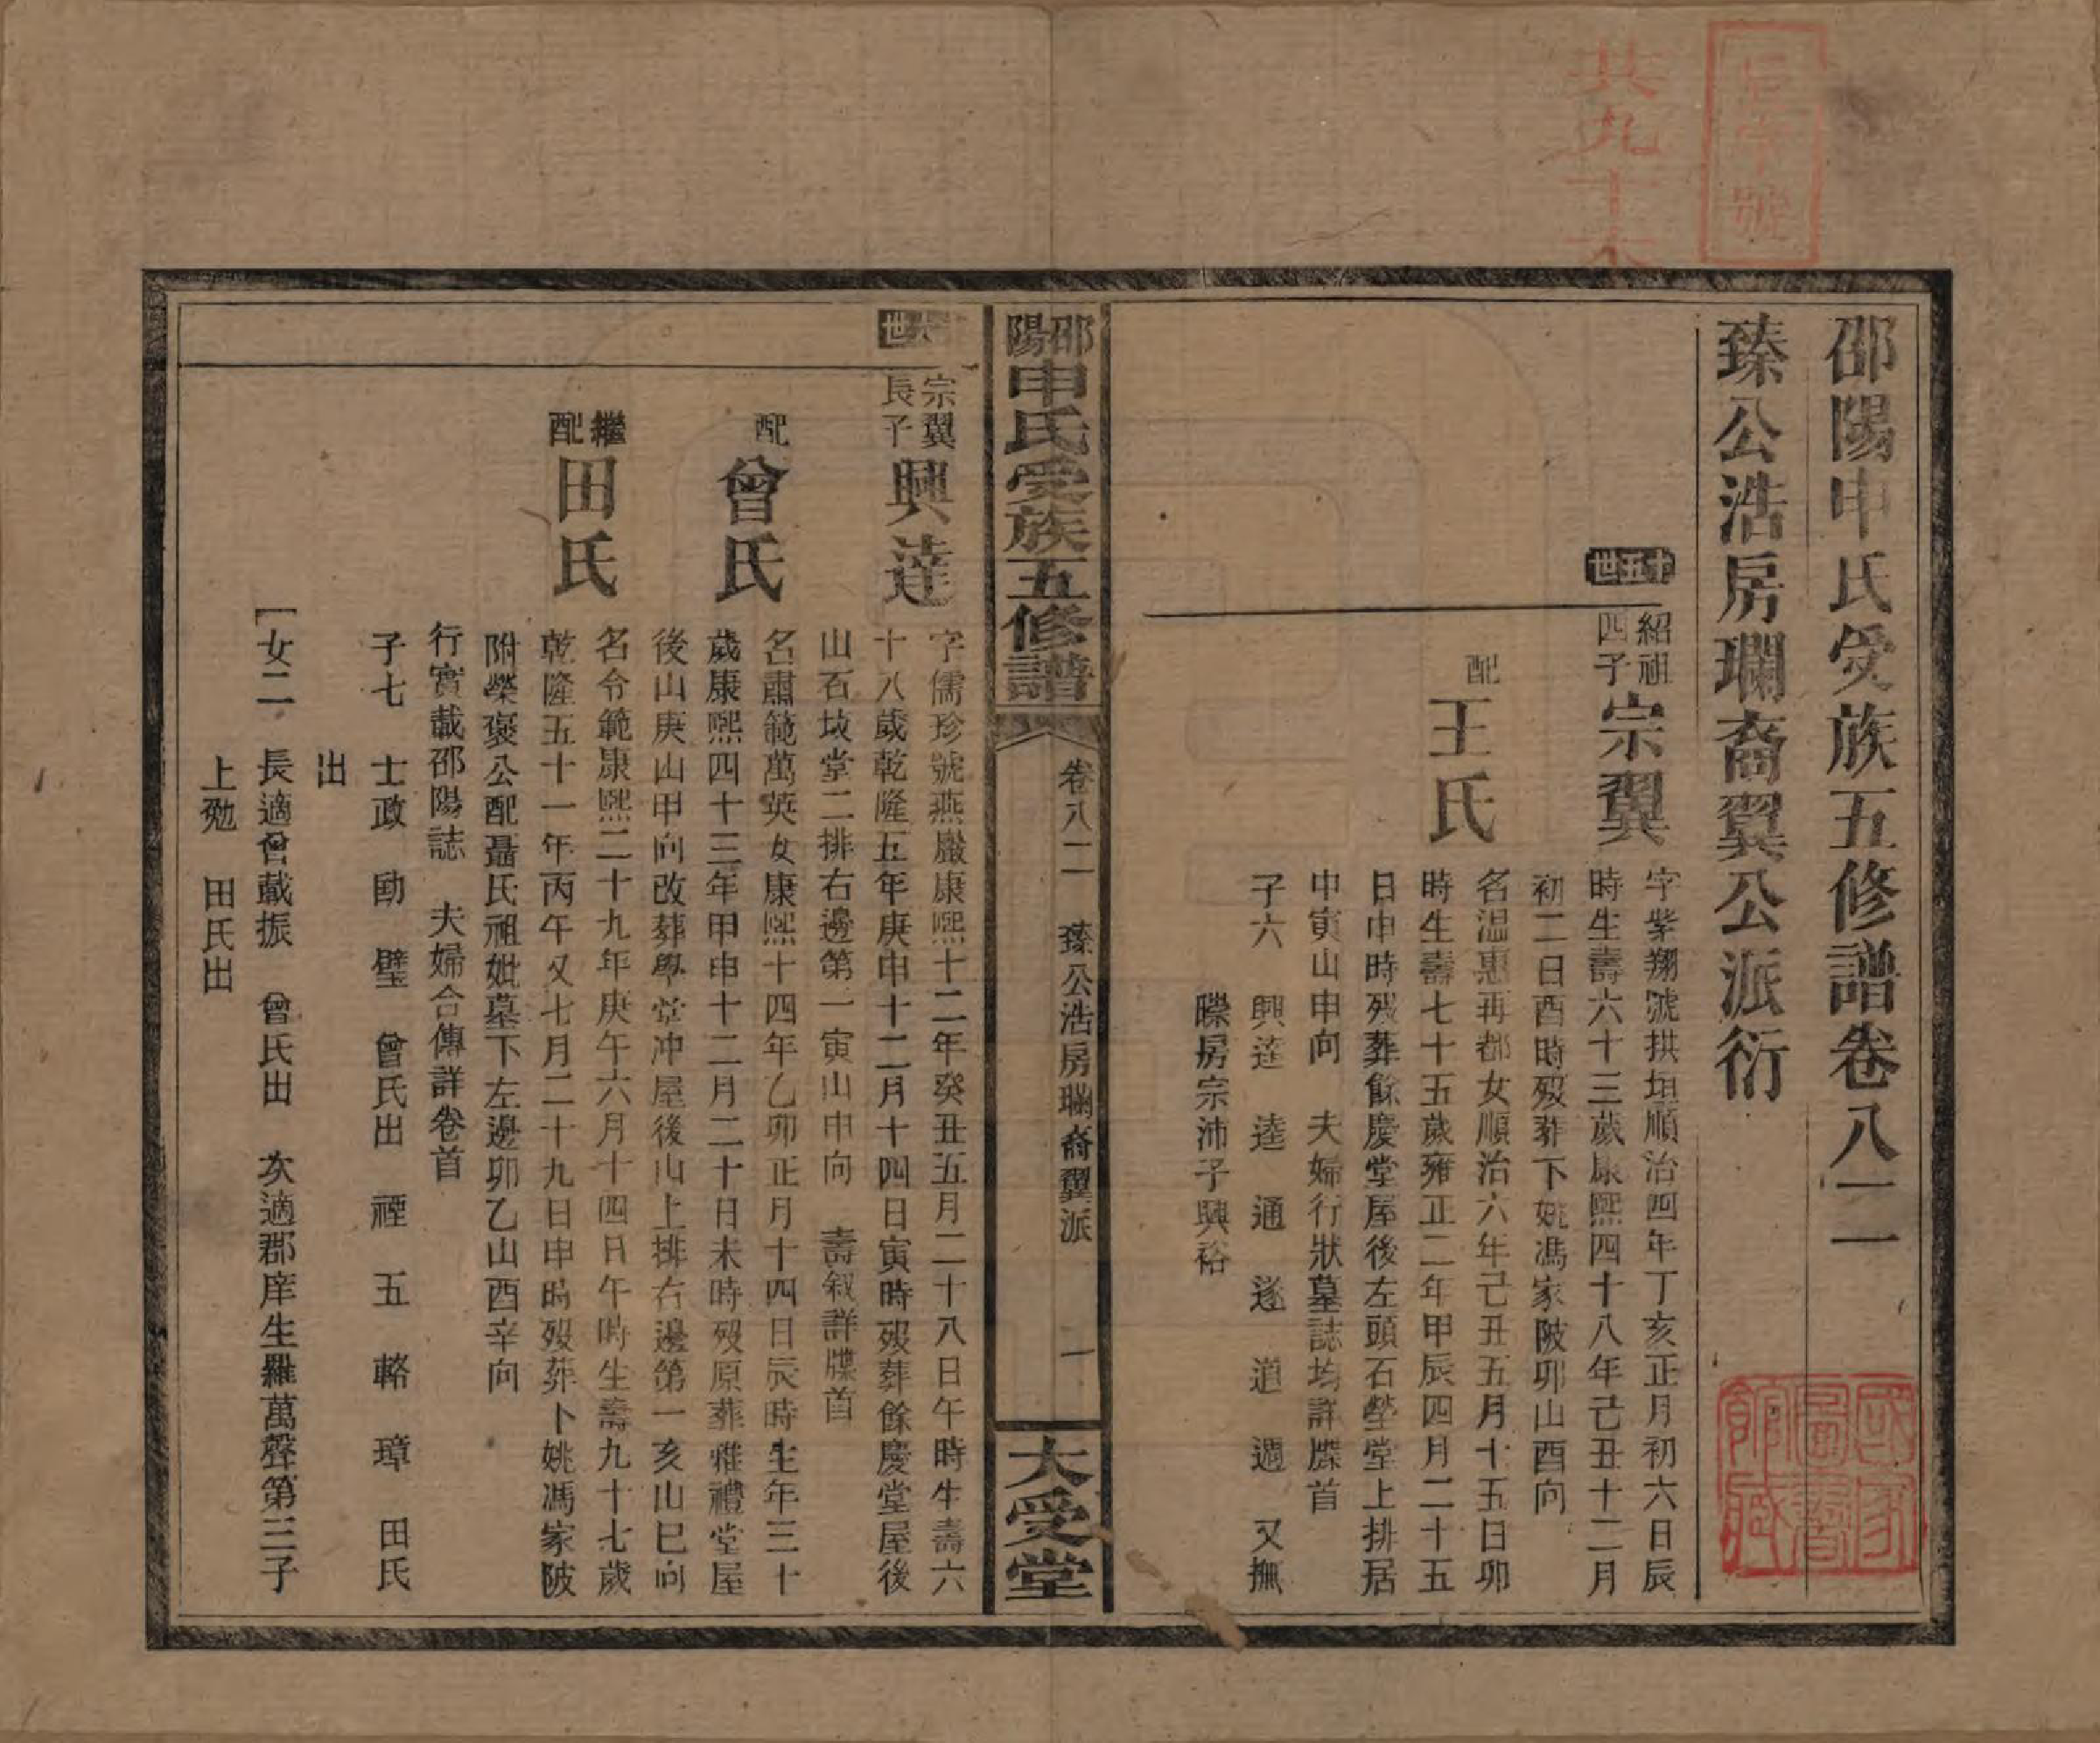 共九十本
字號
邵陽申氏受族五修譜卷八二
臻公浩房瓓裔翼公派衍
十五世
紹祖四子
宗翼
字紫翔號拱垣順治四年丁亥正月初六日辰
時生壽六十三歲康熙四十八年己丑十二月
初二日酉時歿葬下姚馮家陂卯山酉向
配
王氏
名溫惠再都女順治六年己丑五月十五日卯
時生壽七十五歲雍正二年甲辰四月二十五
日申時歿葬餘慶堂屋後左頭石塋堂上排居
中寅山申向 夫婦行狀墓誌均詳牒首
子六 興達 逵 通 遂 道 週 又撫
房宗沛子興裕
國家圖書館藏
邵陽申氏受族五修譜
卷八二 臻公浩房瓓裔翼派 一
大受堂
世
宗翼長子
興達
字儒珍號燕巖康熙十二年癸丑五月二十八日午時生壽六
十八歲乾隆五年庚申十二月十四日寅時歿葬餘慶堂屋後
山石坡堂二排右邊第一寅山申向 壽敘詳牒首
配
曾氏
名肅範萬英女康熙十四年乙卯正月十四日辰時生年三十
歲康熙四十三年甲申十二月二十日未時歿原葬雅禮堂屋
後山庚山甲向改葬學堂沖屋後山上排右邊第一亥山巳向
繼配
田氏
名令範康熙二十九年庚午六月十四日午時生壽九十七歲
乾隆五十一年丙午又七月二十九日申時歿葬卜姚馮家陂
附榮褒公配聶氏祖妣墓下左邊卯乙山酉辛向
行實載邵陽誌 夫婦合傳詳卷首
子七 士政 勖 璧 曾氏出 禋 五 輅 璋 田氏
出
女二 長適曾載振 曾氏出 次適郡庠生羅萬聲第三子
上勉 田氏出